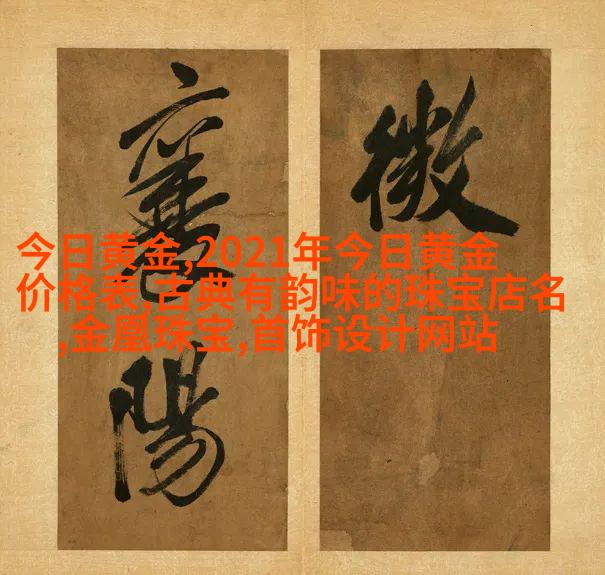 襄陽
今日黄金,2021年今日黄金
价格表,古典有韵味的珠宝店名
,金凰珠宝,首饰设计网站